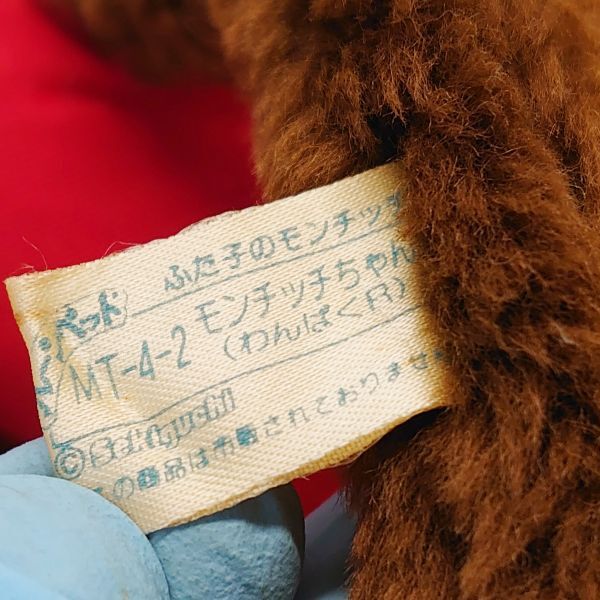 ふた子のモンチッチ
ペット
MT-4-2 モンチッチちゃん
(わんぱくR)
©
の商品は市販されておりませ